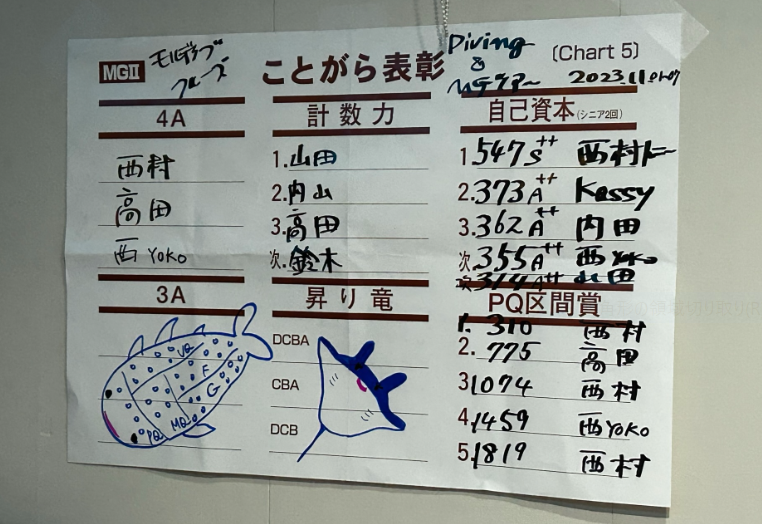 MGⅡ モルディブ クルーズ ことがら表彰 Diving & MGツアー 〔Chart 5〕
2023.11.01-07
4A
西村
高田
西 YOKO
3A
VQ
F
G
PQ MQ
計数力
1. 山田
2. 内山
3. 高田
次. 鈴木
昇り竜
DCBA
CBA
DCB
自己資本(シニア2回)
1. 547 S++ 西村
2. 373 A++ Kessy
3. 362 A++ 内田
次. 355 A++ 西 YOKO
次. 314 A++ 山田
PQ区間賞
1. 310 西村
2. 775 高田
3. 1074 西村
4. 1459 西 YOKO
5. 1819 西村